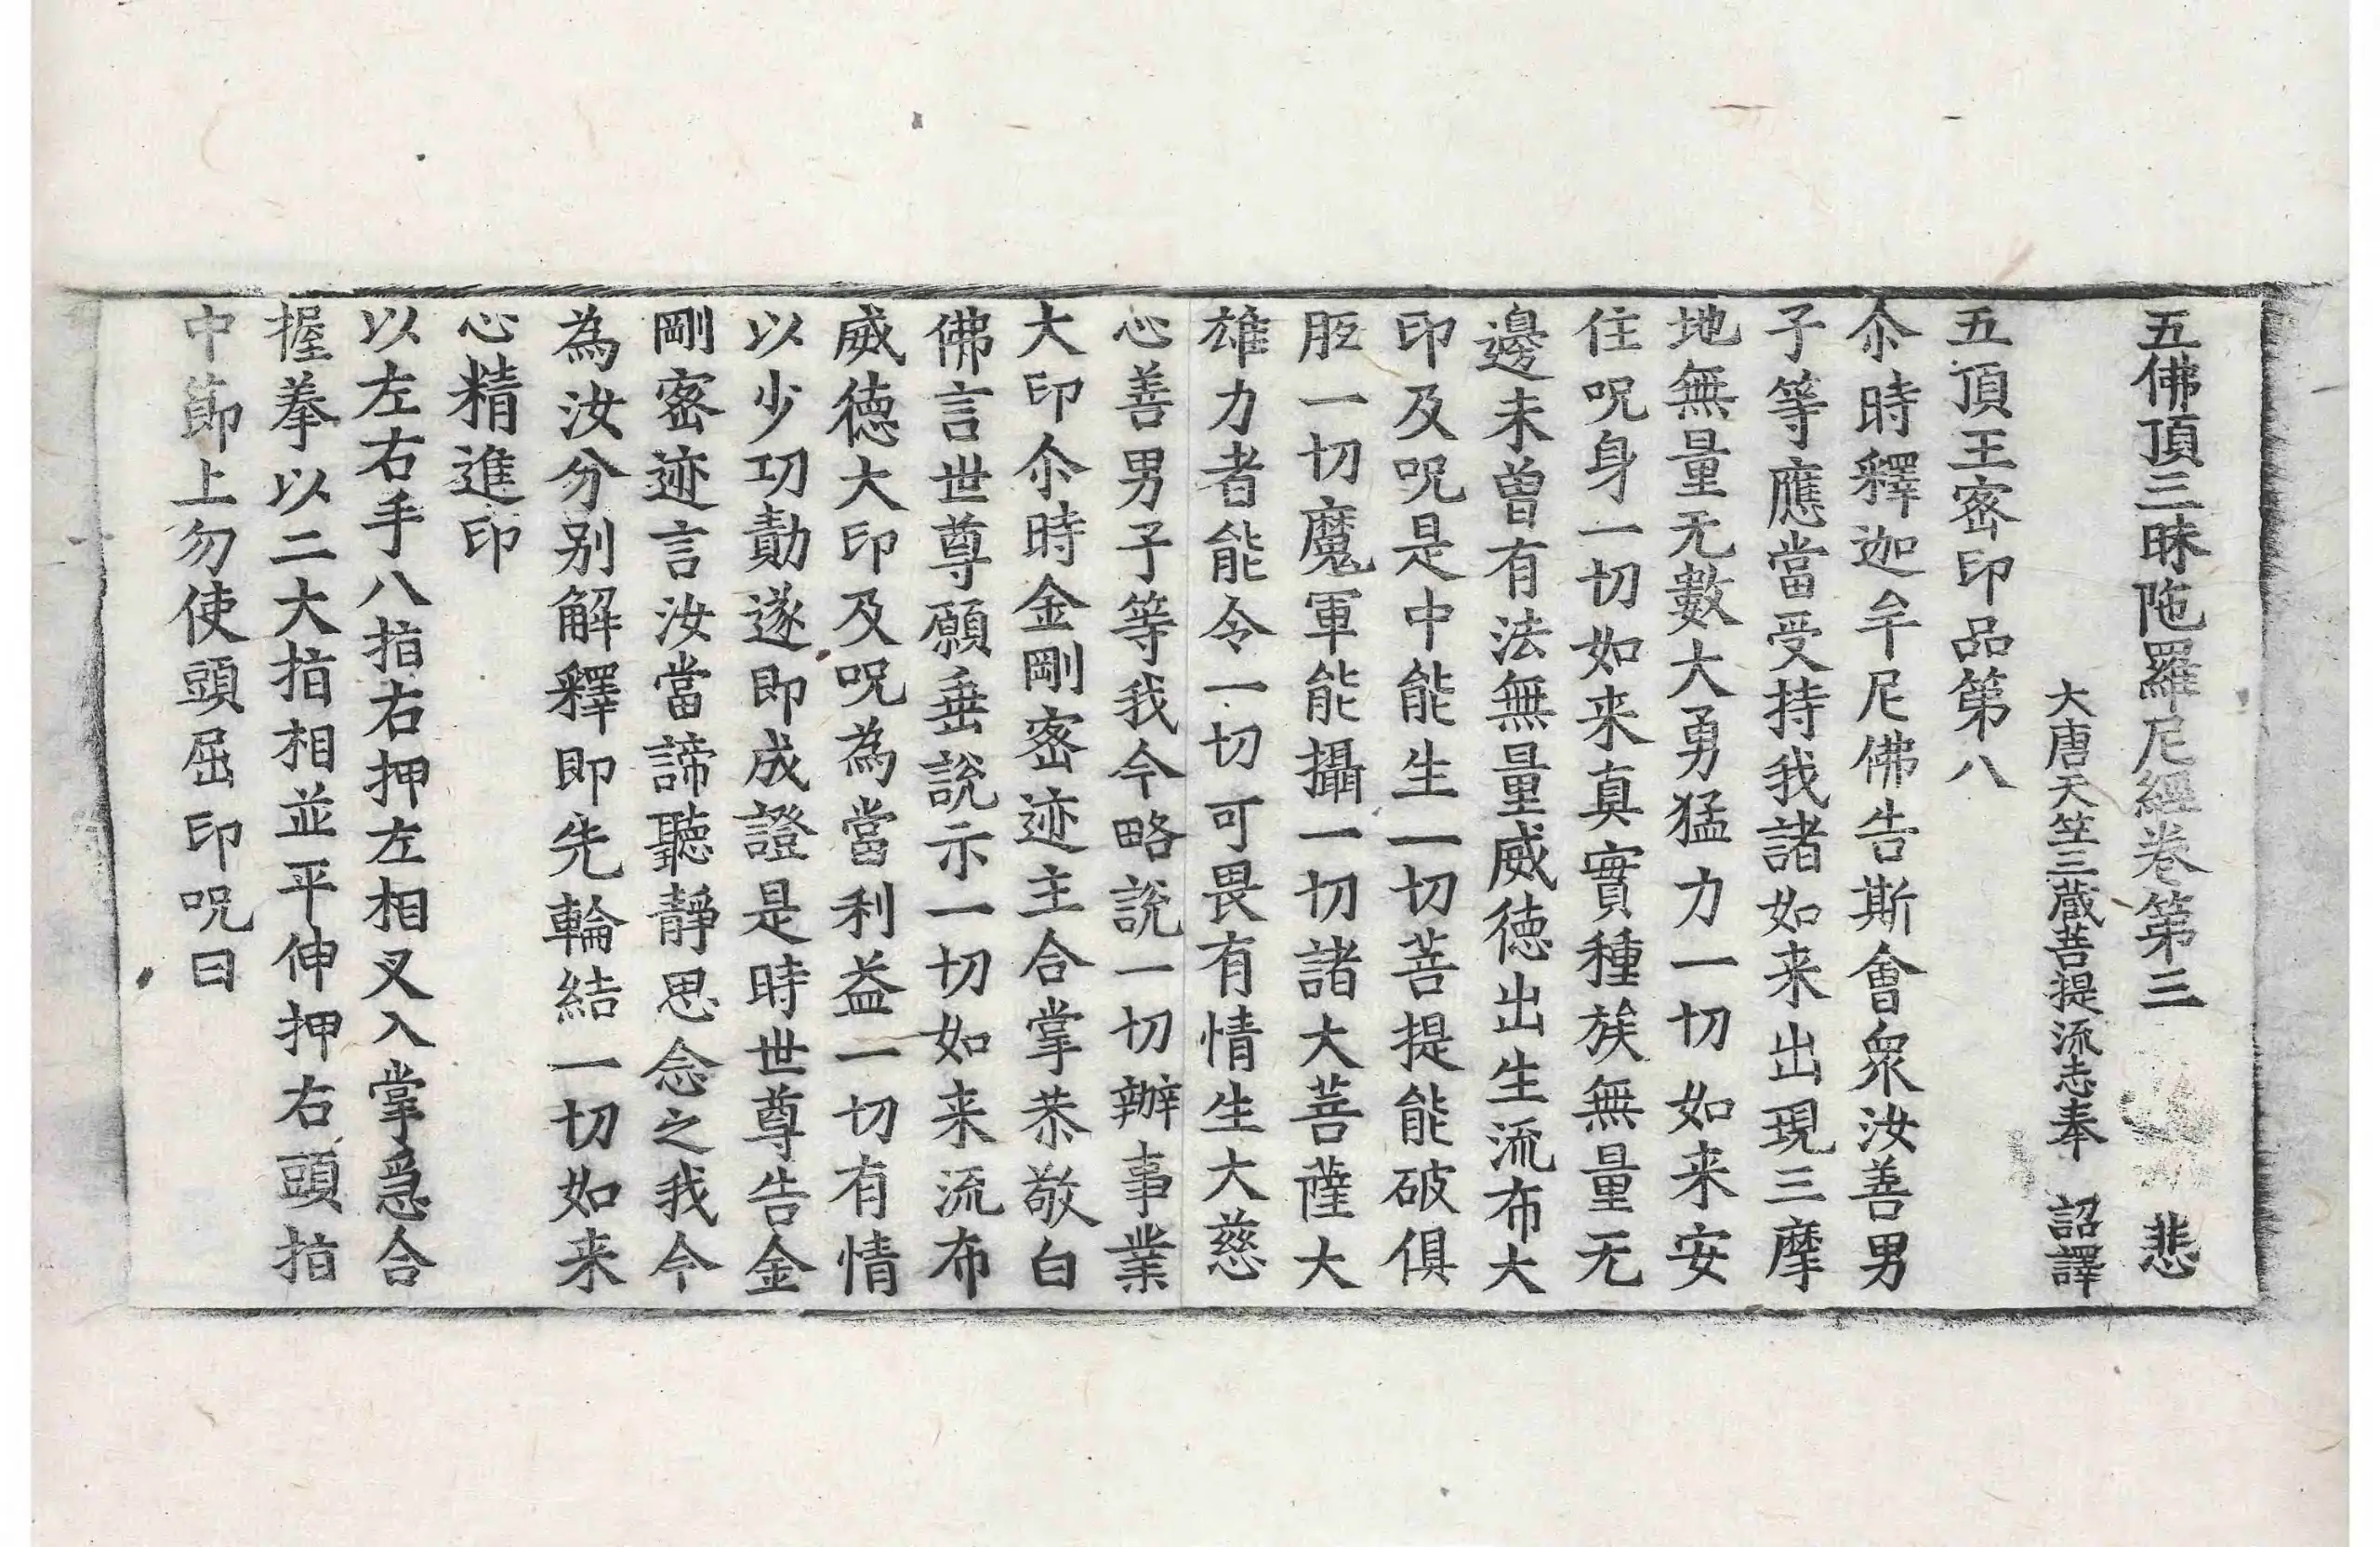 五佛頂三昧陁羅尼經卷第三 悲
大唐天竺三藏菩提流志奉 詔譯
五頂王宻印品第八
尒時釋迦牟尼佛告斯會衆汝善男
子等應當受持我諸如来出現三摩
地無量无數大勇猛力一切如来安
住呪身一切如来真實種族無量无
邊未曾有法無量威德出生流布大
印及呪是中能生一切菩提能破俱
胝一切魔軍能攝一切諸大菩薩大
雄力者能令一切可畏有情生大慈
心善男子等我今略說一切辦事業
大印尒時金剛宻迹主合掌恭敬白
佛言世尊願垂說示一切如来流布
威德大印及呪為當利益一切有情
以少功勣遂即成證是時世尊告金
剛宻迹言汝當諦聽靜思念之我今
為汝分别解釋即先輪結一切如来
心精進印
以左右手八指右押左相叉入掌急合
握拳以二大指相並平伸押右頭指
中節上勿使頭屈印呪曰